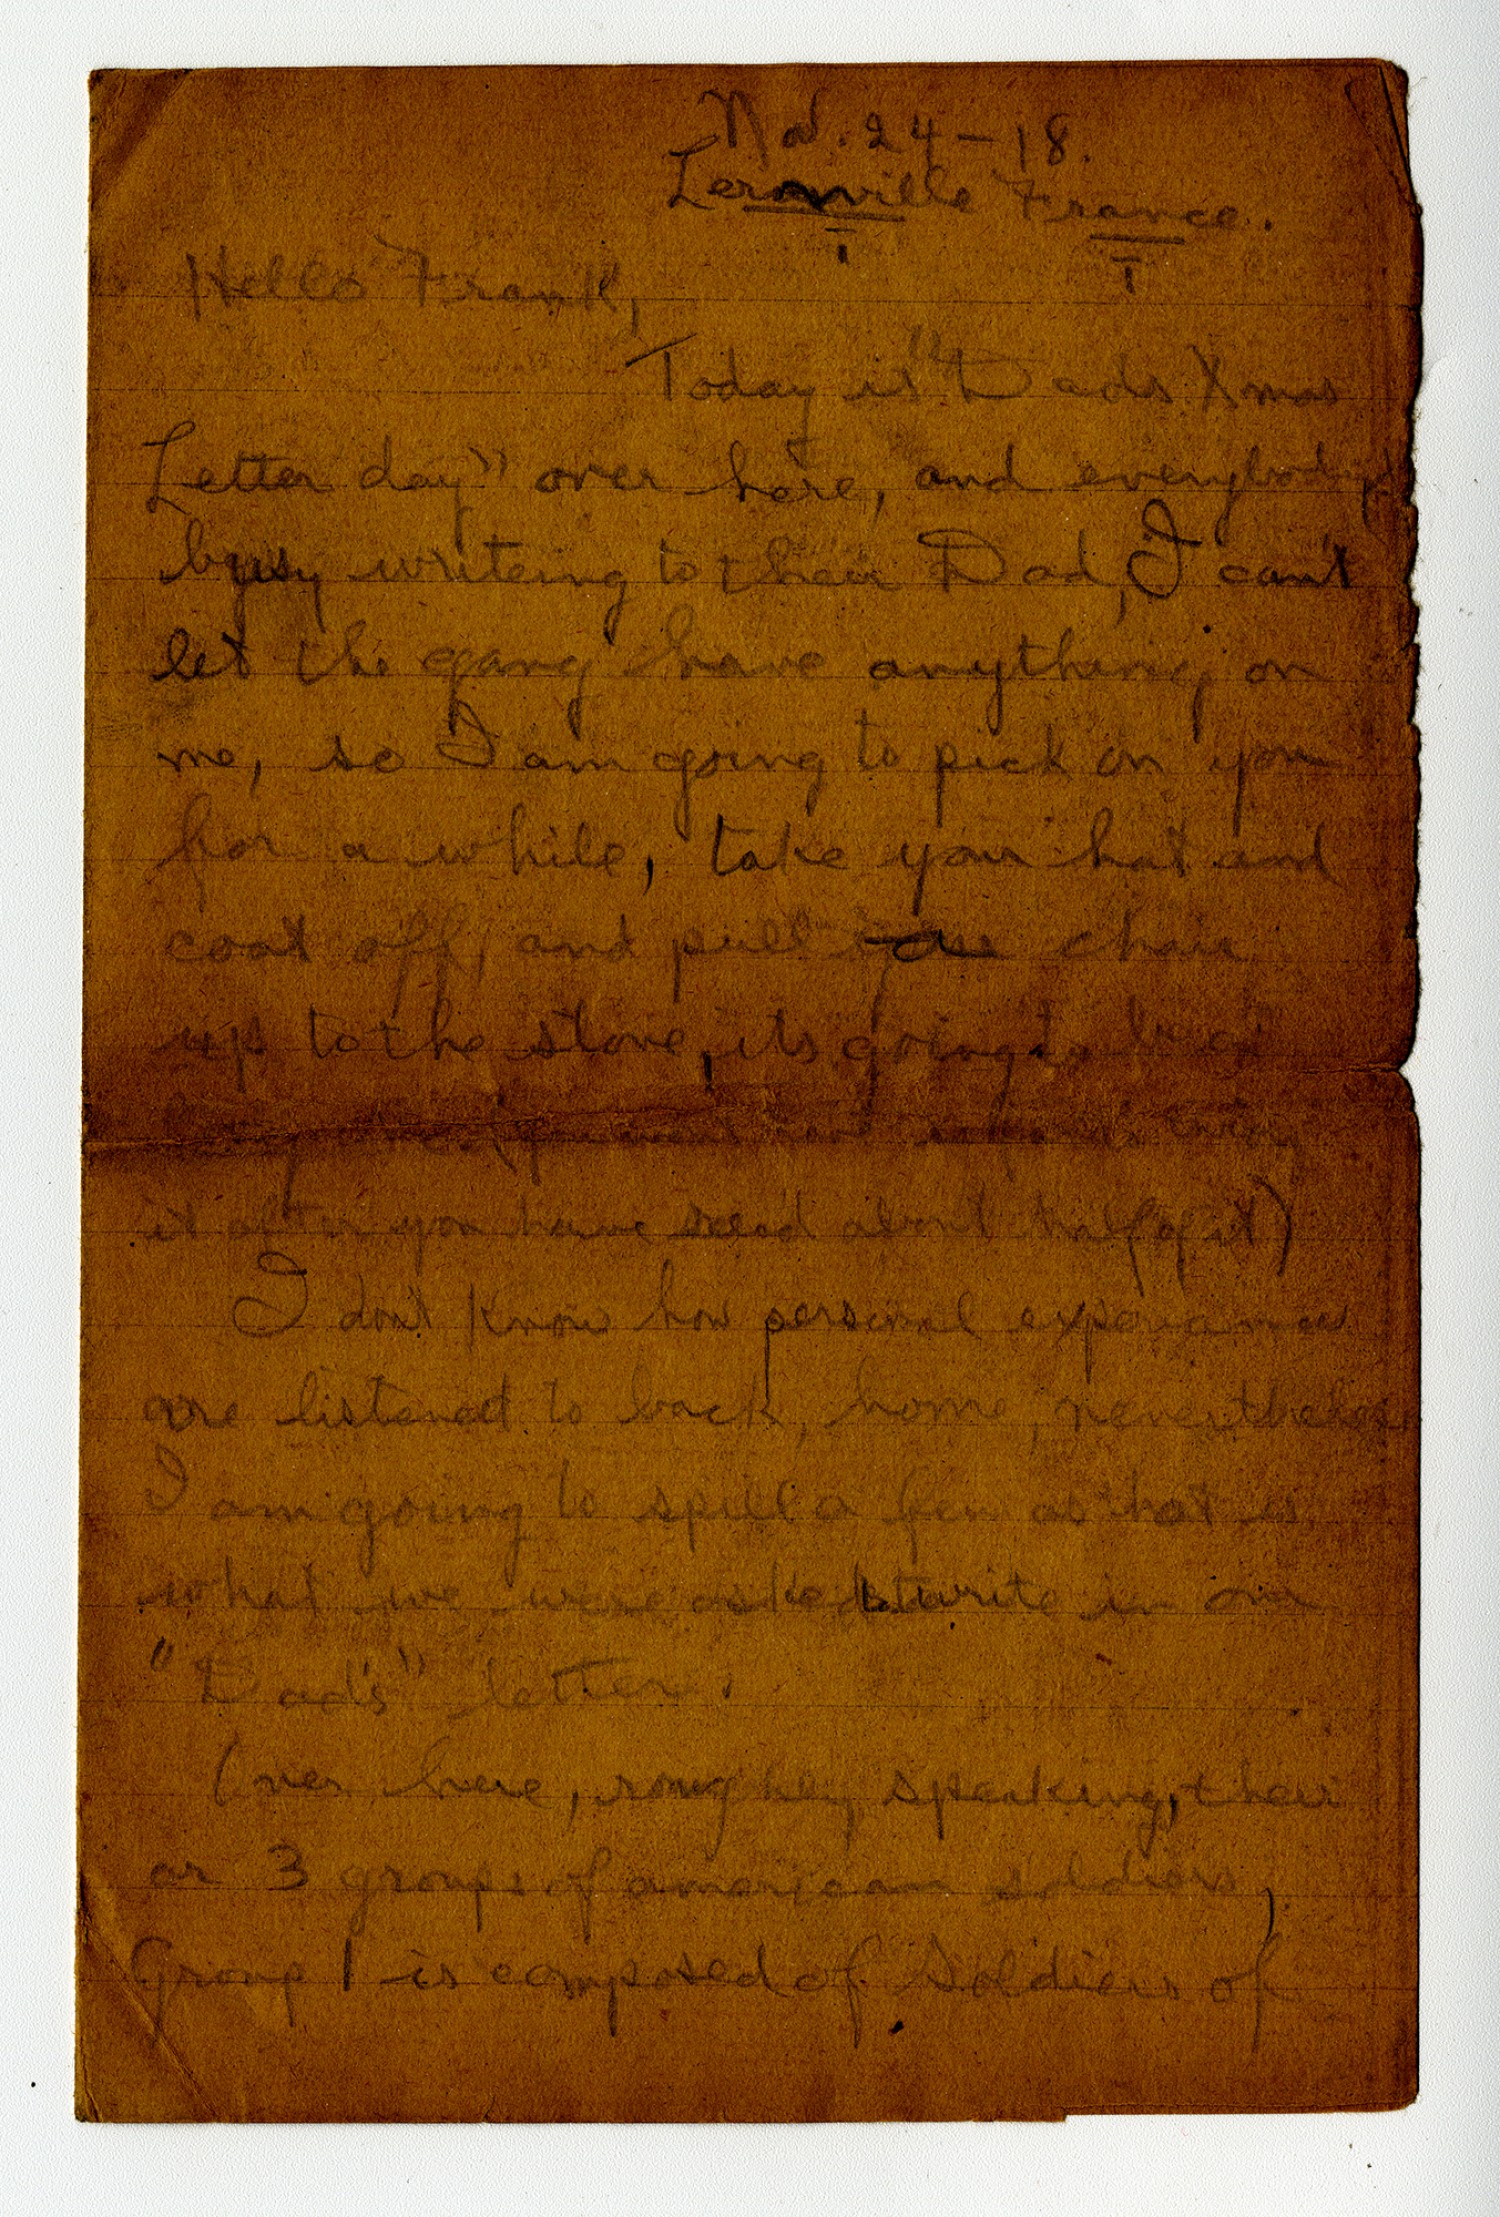 Nov. 24-18.
Lerouville France.
Hello Frank,
Today is "Dads Xmas
Letter day" over here, and everybody
busy writeing to their Dad, I can't
let the gang have anything on
me, so I am going to pick on you
for a while, take your hat and
coat off, and pull chair
up to the stove, its going to be a
long
it after you have read about half of it)
I don't know how personal experiances
are listened to back, home, nevertheless
I am going to spill a few as that is
what we were asked to write in our
"Dad's" letter.
Over here, roughly, speaking, their
ar 3 groups of american soldiers,
Group 1 is composed of Soldiers of